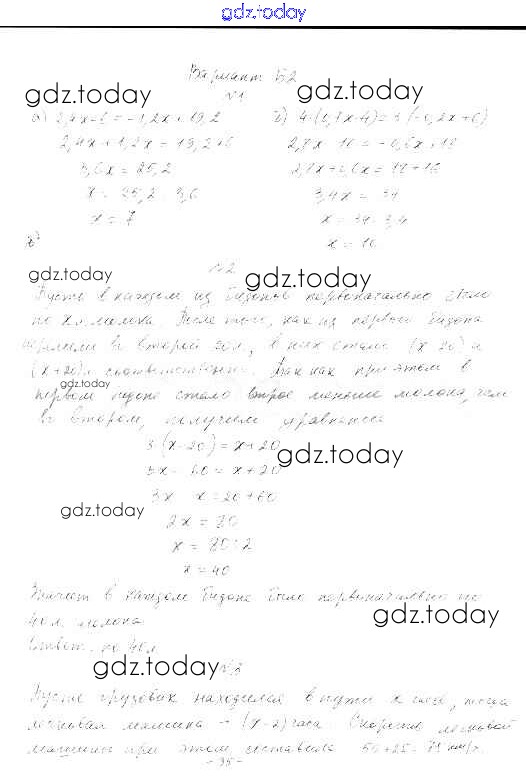 gdz.today
Вариант Б2
gdz.today gdz.today
№1
а) 2,4x-6=-1,2x+19,2 б) 4·(0,7x-4)=3·(-0,2x+6)
2,4x+1,2x=19,2+6 2,8x-16=-0,6x+18
3,6x=25,2 2,8x+0,6x=18+16
x=25,2:3,6 3,4x=34
x=7 x=34:3,4
x=10
№2
gdz.today gdz.today
Пусть в каждом из бидонов первоначально было
по x л молока. После того, как из первого бидона
перелили во второй 20л, в них стало (x-20) и
(x+20)л соответственно. Так как при этом в
gdz.today
первом бидоне стало втрое меньше молока, чем
во втором, получаем уравнение
3(x-20)=x+20
gdz.today
3x-60=x+20
3x-x=20+60
gdz.today
2x=80
x=80:2
x=40
Значит в каждом бидоне было первоначально по
40л молока.
gdz.today
Ответ: по 40л
gdz.today
№3
Пусть грузовик находился в пути x часов, тогда
легковая машина - (x-2) часа. Скорость легковой
машины при этом составила 50+25=75 км/ч.
- 35 -